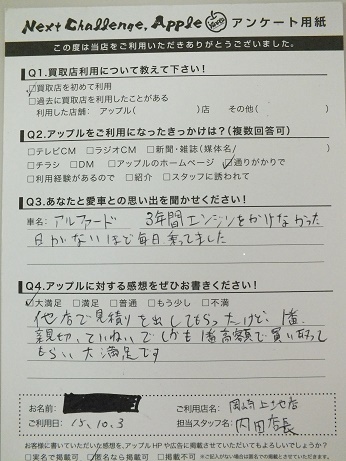 Next Challenge, Apple アンケート用紙
この度は当店をご利用いただきありがとうございました。
Q1.買取店利用について教えて下さい!
☑買取店を初めて利用
□過去に買取店を利用したことがある
利用した店舗: アップル( )店 その他( )
Q2.アップルをご利用になったきっかけは?(複数回答可)
□テレビCM □ラジオCM □新聞・雑誌(媒体名/ )
□チラシ □DM □アップルのホームページ ☑通りがかりで
□利用経験があるので □紹介 □スタッフに誘われて
Q3.あなたと愛車との思い出を聞かせください!
車名: アルファード 3年間エンジンをかけなかった
日がないほど毎日乗ってました
Q4.アップルに対する感想をぜひお書きください!
☑大満足 □満足 □普通 □もう少し □不満
他店で見積りを出してもらったけど、1番
親切、ていねいでしかも1番高額で買い取って
もらい大満足です
お名前: ご利用店名: 岡崎上地店
ご利用日: 15.10.3 担当スタッフ名: 内田店長
お客様に書いていただいた感想を、アップルHPや広告に掲載させていただいてもよろしいでしょうか?
□実名で掲載可 ☑匿名なら掲載可 □掲載不可 ※ご記入がない場合は匿名での掲載とさせていただきます。